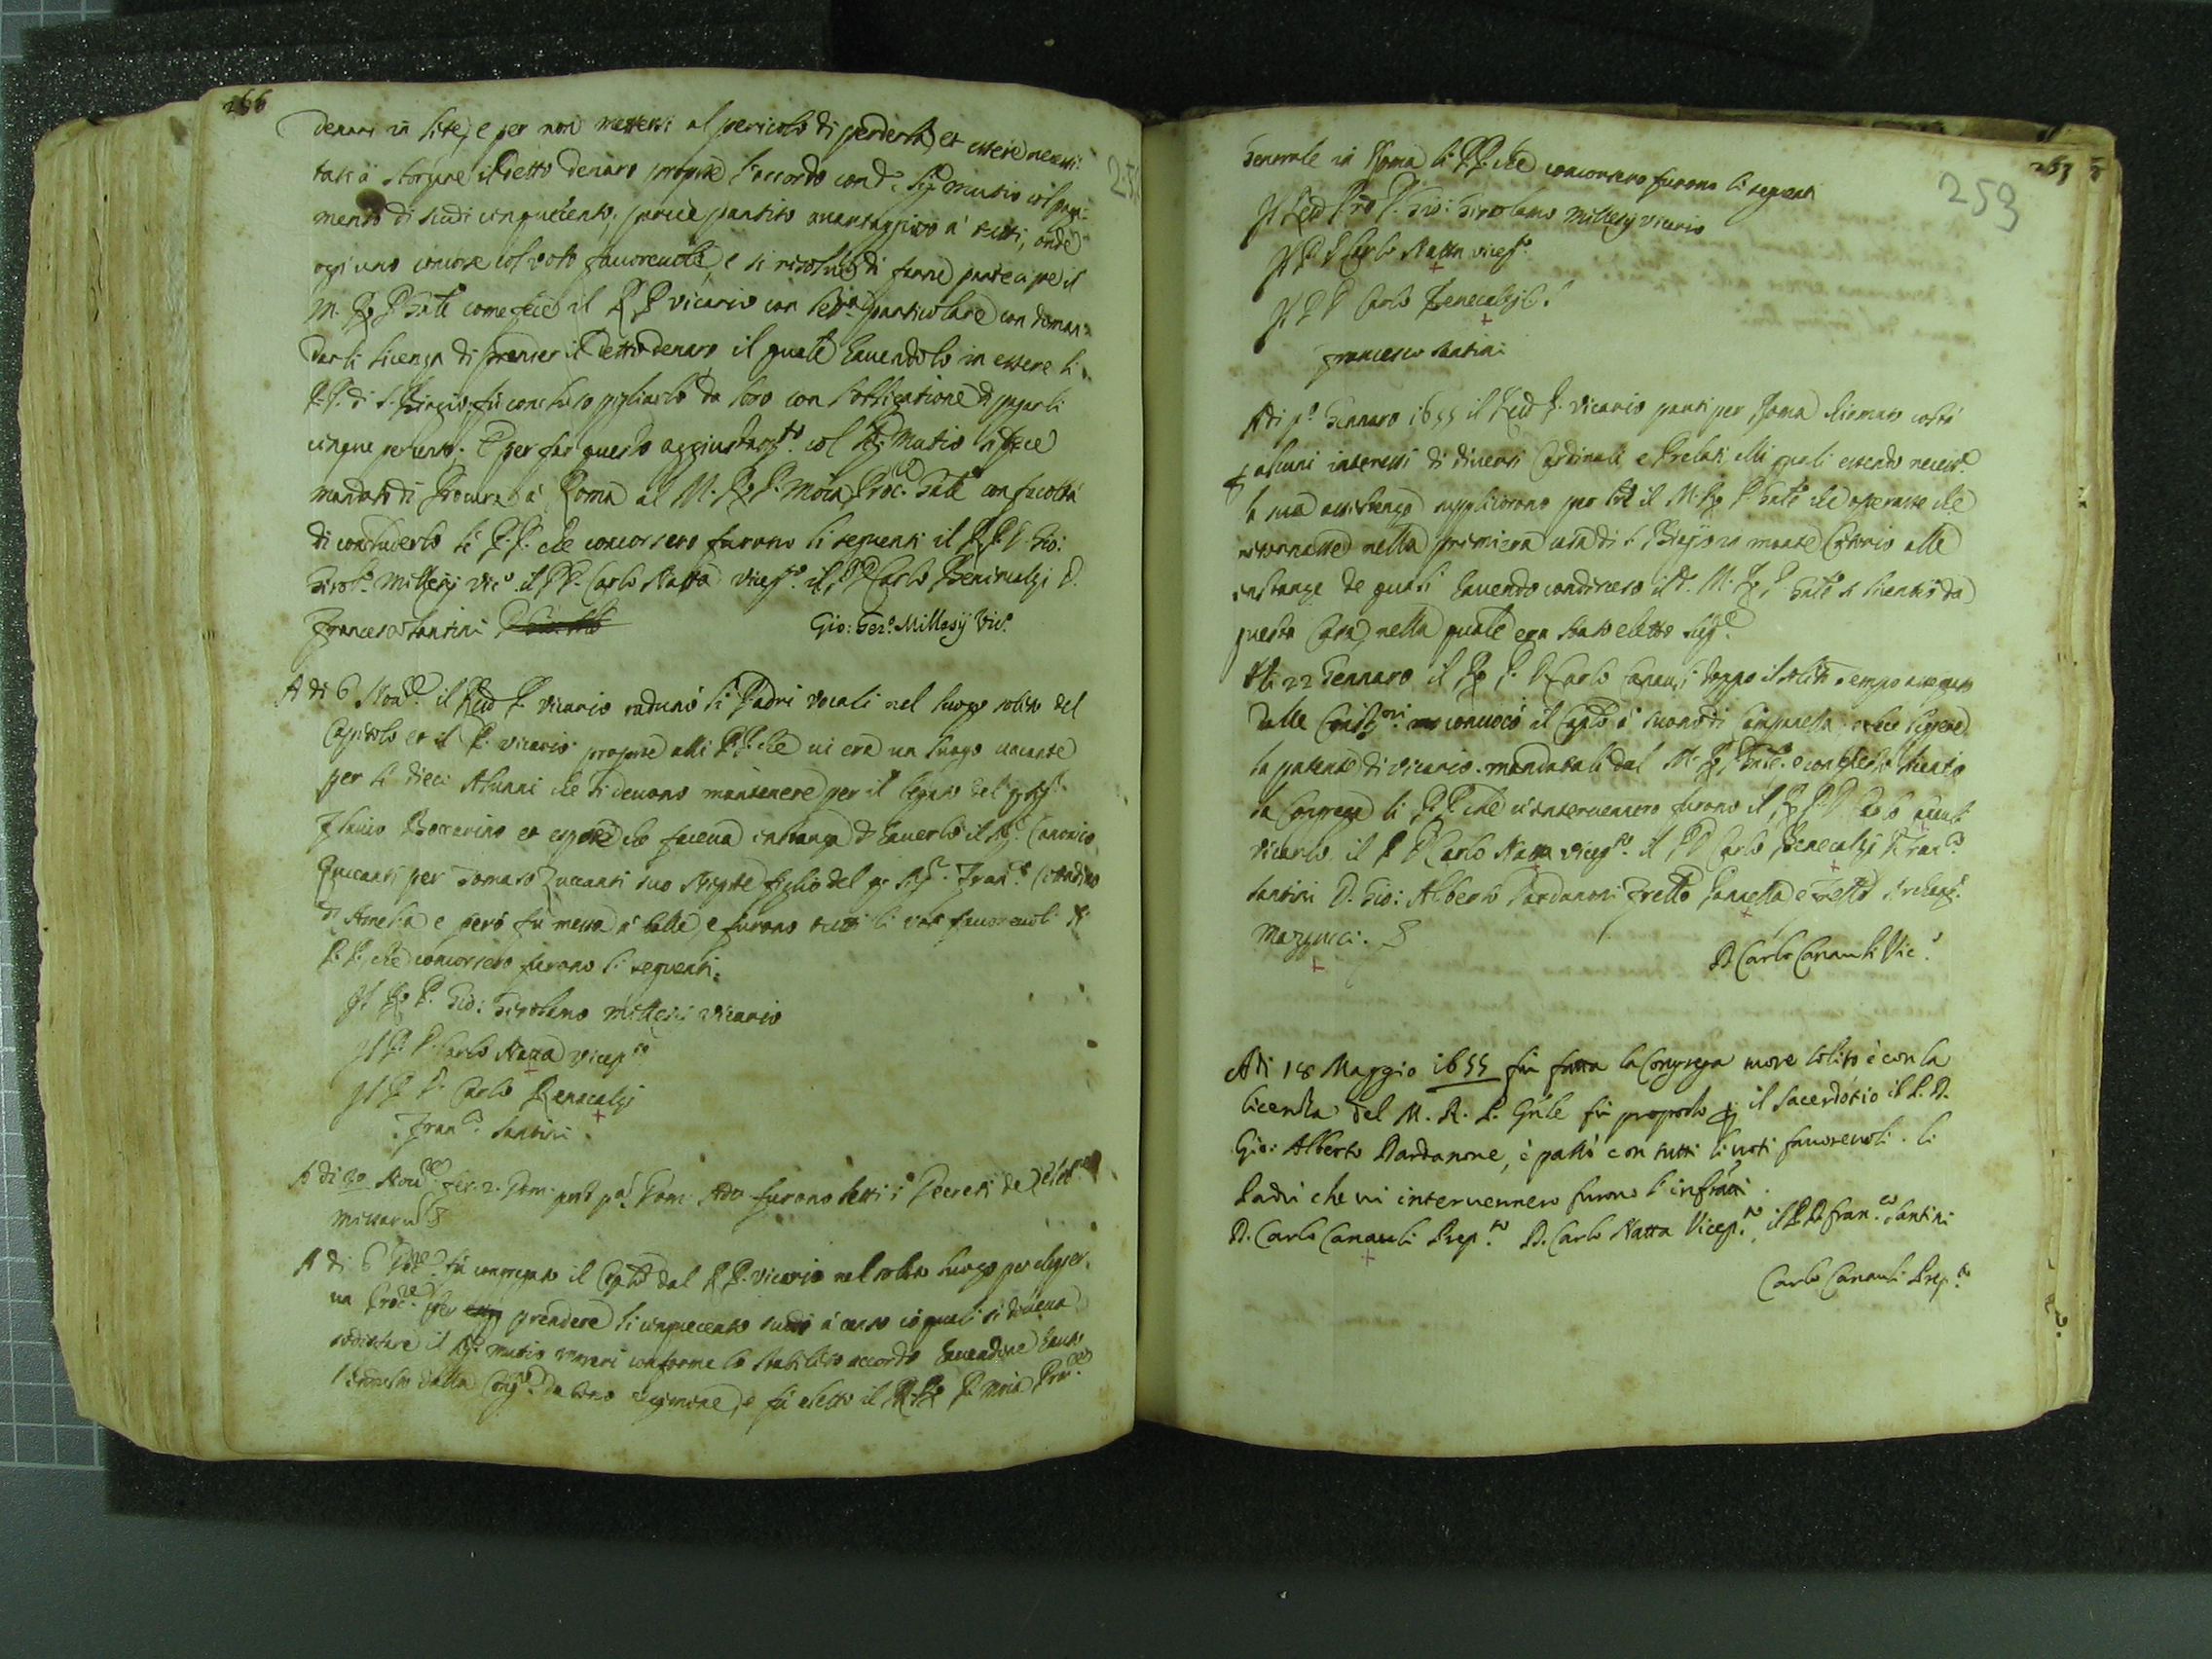 266
denari in lite, e per non mettersi al pericolo di perderla, et essere necessi:
tati à sborsare il detto denaro propose l'accordo con d.º Sig.r Mutio col paga:
mento di scudi cinquecento, parue partito auantaggioso à tutti, onde
ogn'uno concorse col voto fauoreuole, e si risolse di farne partecipe il
M. R. P. Gn̄le come fece il R. P. Vicario con lr̄a particolare con doman:
darli licenza di prender il detto denaro il quale hauendolo in essere li
P.P. di S. Biagio, fù concluso pigliarlo da loro con l'obligatione di pagarli
cinque per cento. E per far questo aggiustam.to col Sig. Mutio si fece
mandato di Procura à Roma al M. R. P. Moia Proc. Gn̄le con facoltà
di concluderlo li P.P. che concorsero furono li seguenti il R. P. D. Gio:
Girol.º Millesij Vic.º il P.D. Carlo Natta Vicep.to il P.D. Carlo Benecalzi D.
Francesco Santini
Gio: Ger.º Millesij Vic.º
A di 6 Nou.re il R.do P. Vicario radunò li Padri vocali nel luogo solito del
Capitolo et il P. Vicario propose alli P.P. che ui era un luogo uacante
per li dieci Alunni che si deuono mantenere per il legato del q. Sig.r
Flauio Boccarino et espose che faceua instanza d'hauerlo il Sig.r Canonico
Zuccanti per Tomaso Zuccanti suo Nipote figlio del q. Sig.r Fran.co Cittadino
di Amelia e però fu messo à balle, e furono tutti li voti fauoreuoli li
P.P. che concorsero furono li seguenti.
Il R. P. Gio: Girolamo Millesij Vicario
Il P. D. Carlo Natta Vicep.to
Il P. D. Carlo Benecalzi
Fran.co Santini
A di 30 Nou.re fer. 2. Dom. post p.ª Dom. Adu. furono letti i Decreti de celeb.ne
Missarum
A di 6 Xbre fù congregato il Cap.lo dal R. P. Vicario nel solito luogo per elegger.
un Proc.re per prendere li cinquecento scudi à censo co quali si doueua
sodisfare il Sig.r Mutio conforme lo stabilito accordo hauendone hauuto
l'indulto dalla Cong.e e fù eletto il M. R. P. Moia Proc.re
259
267
Generale in Roma li P.P. che concorsero furono li seguenti
Il R.do P.re D. Gio: Girolamo Millesij Vicario
Il P. D. Carlo Natta Vicep.to
Il P. D. Carlo Benecalzi
Francesco Santini
A di p.º Gennaro 1655 il R.do P. Vicario partì per Roma chiamato costà
p alcuni interessi di diuersi Cardinali e Prelati alli quali essendo necess.ª
la sua assistenza supplicorono il M. R. P. Gn̄le che operasse che
ritornasse nella primiera casa di S. Biagio in monte Citorio alle
instanze de quali hauendo condisceso il d. M. R. P. Gn̄le si licentiò da
questa Casa, nella quale era stato eletto Sup.re
Alli 22 Gennaro il R. P. D. Carlo Canauli doppo il solito tempo assegnato
dalle Constit.oni conuocò il Cap.lo à suono di Campanella, e fece leggere
la patente di Vicario mandatali dal M. R. P. Gn̄le e con questo licentiò
la Congrega li P.P. che u'interuennero furono il R. P. D. Carlo Canauli
Vicario, il P. D. Carlo Natta Vicep.to il P.D. Carlo Benecalzi D. Fran.co
Santini D. Gio: Alberto Dardanoni Frello e Frello
Mazzucci.
D. Carlo Canauli Vic.º
Adi 18 Maggio 1655 fu fatta la Congrega more solito è con la
licenza del M. R. P. Gn̄le fù proposto p il Sacerdotio il P. D.
Gio: Alberto Dardanone, è passò con tutti li uoti fauoreuoli. li
Padri che ui interuennero furono l'infratti.
D. Carlo Canauli Prep.to D. Carlo Natta Vicep.to, il P. D. Fran.co Santini
Carlo Canauli Prep.to